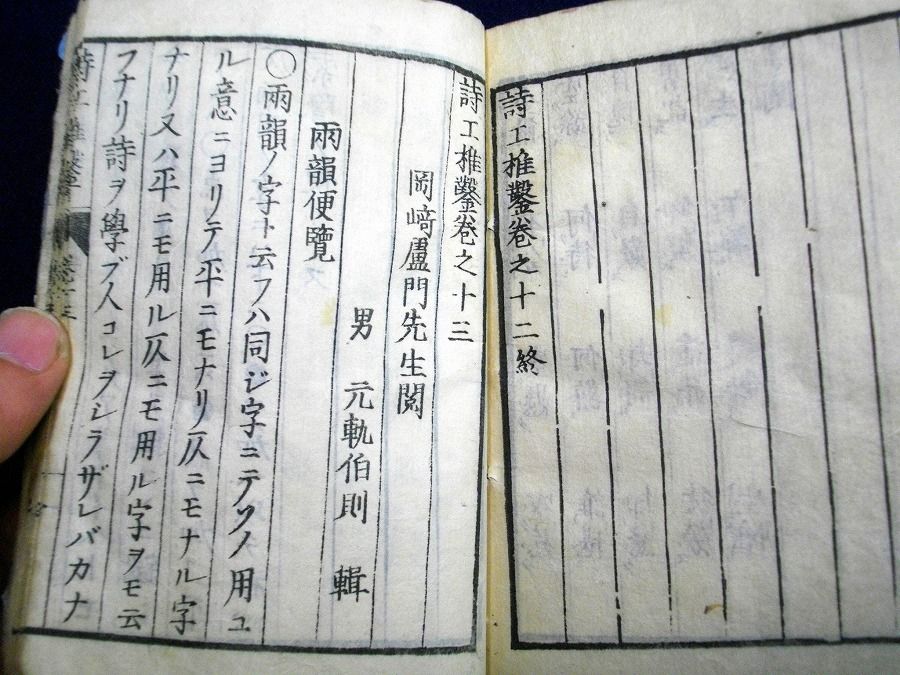 詩工推鑿卷之十二終
詩工推鑿卷之十三
岡﨑盧門先生閲
男 元軌伯則 輯
兩韻便覽
〇兩韻ノ字ト云フハ同ジ字ニテソノ用ユ
ル意ニヨリテ平ニモナリ仄ニモナル字
ナリ又ハ平ニモ用ル仄ニモ用ル字ヲモ云
フナリ詩ヲ學ブ人コレヲシラザレバカナ